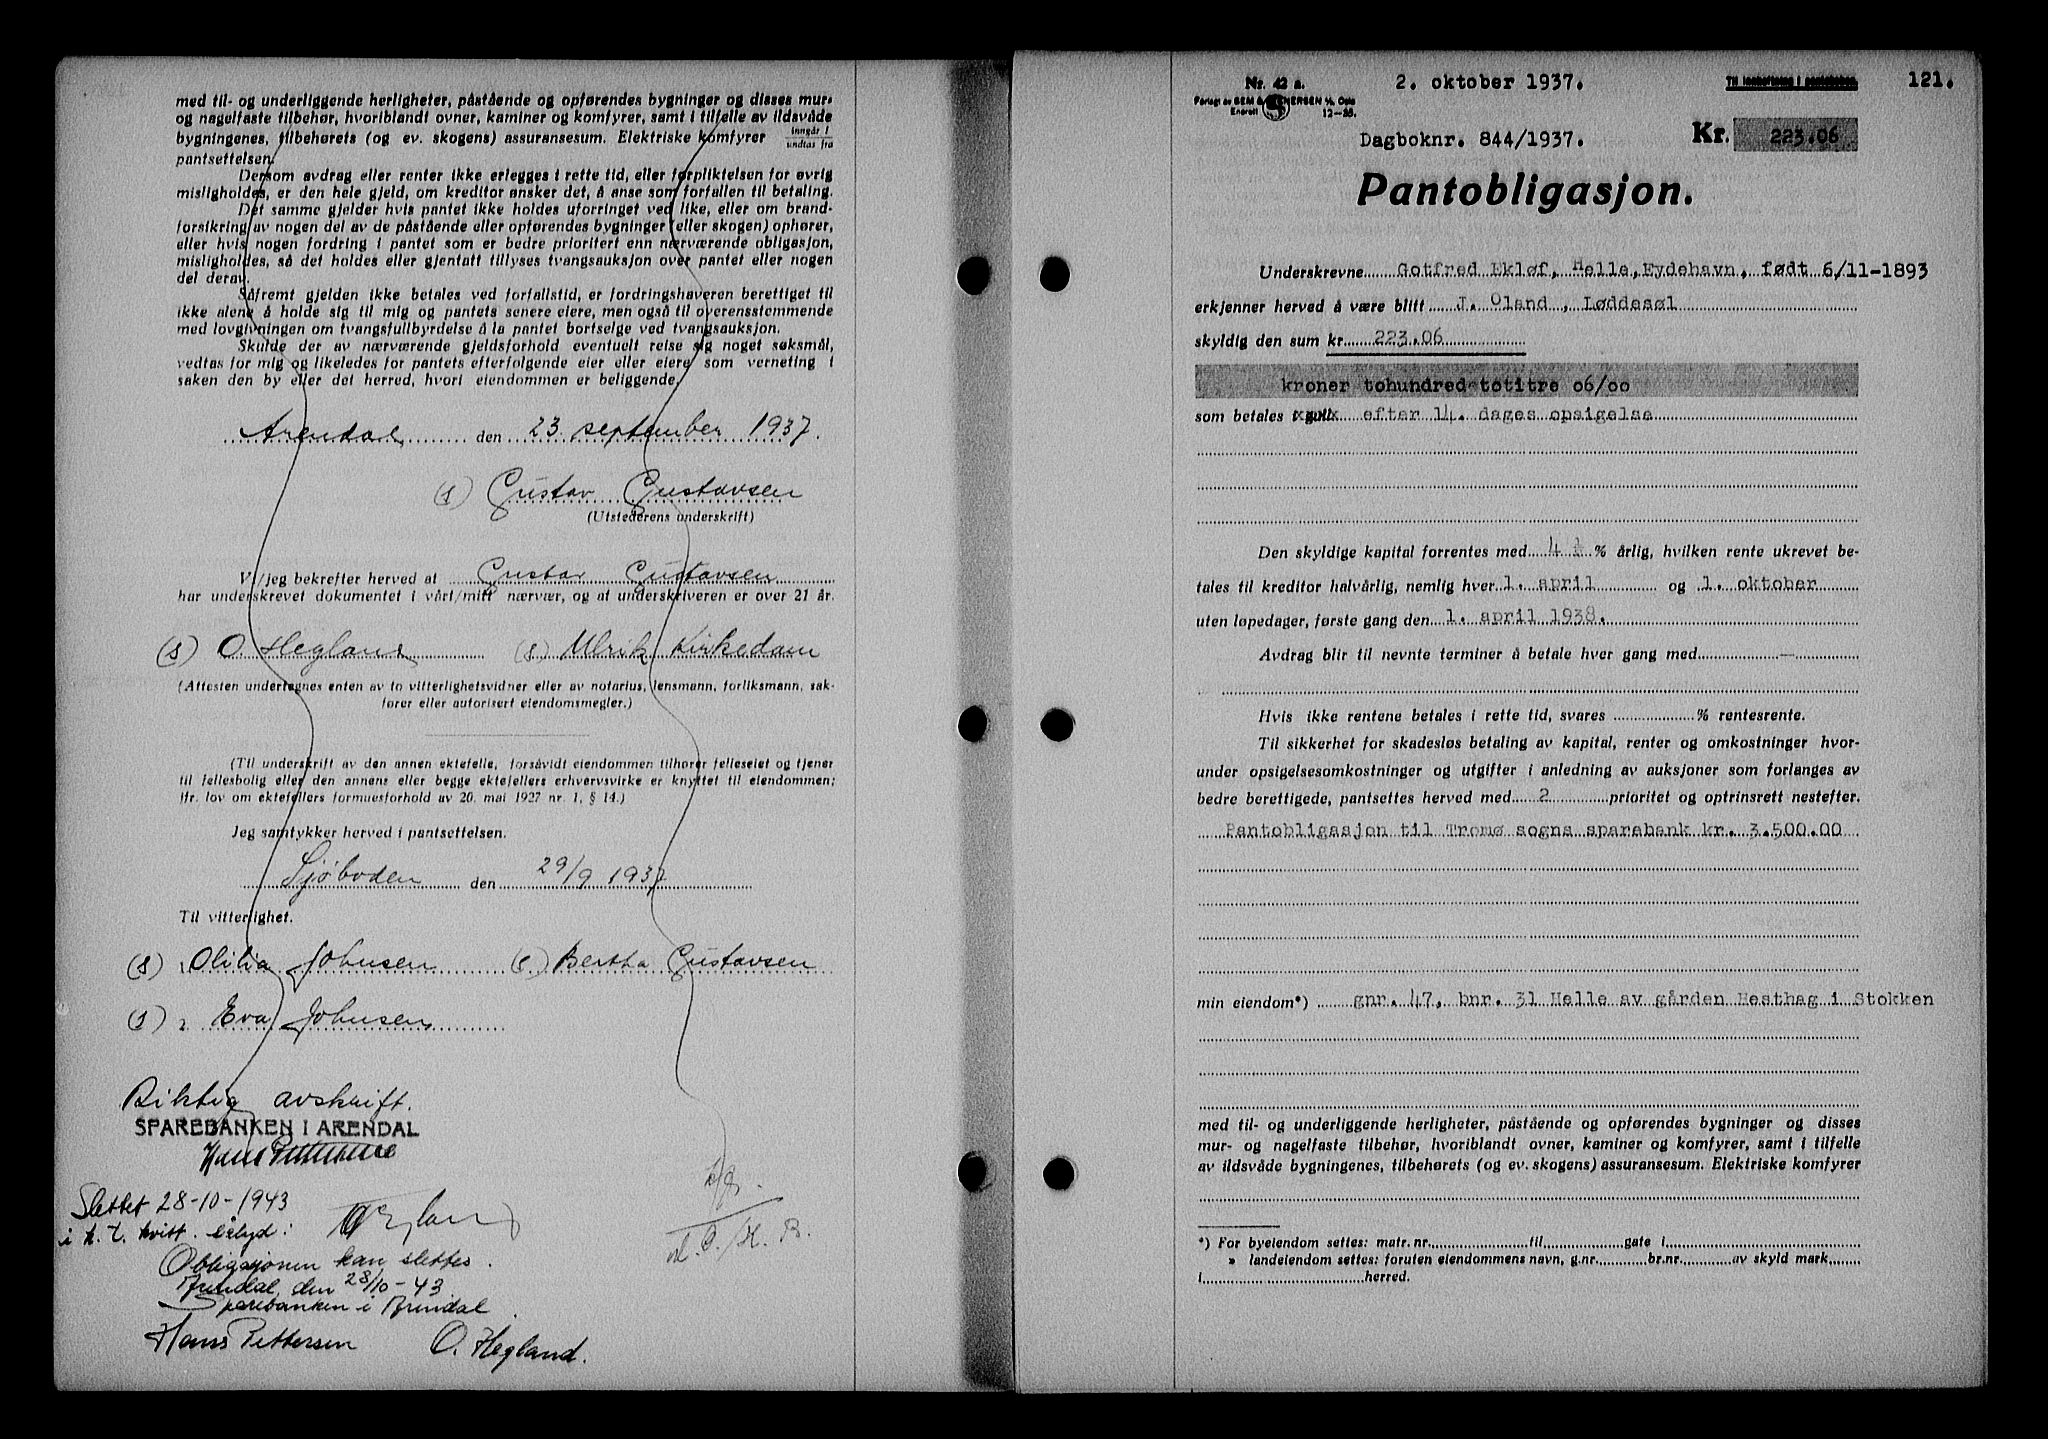 med til- og underliggende herligheter, påstående og opførendes bygninger og disses mur-
og nagelfaste tilbehør, hvoriblandt ovner, kaminer og komfyrer, samt i tilfelle av ildsvåde
bygningenes, tilbehørets (og ev. skogens) assuransesum. Elektriske komfyrer inngår i / undtas fra
pantsettelsen.
Dersom avdrag eller renter ikke erlegges i rette tid, eller forpliktelsen for øvrig
misligholdes, er den hele gjeld, om kreditor ønsker det, å anse som forfallen til betaling.
Det samme gjelder hvis pantet ikke holdes uforringet ved like, eller om brand-
forsikring av nogen del av de påstående eller opførendes bygninger (eller skogen) ophører,
eller hvis nogen fordring i pantet som er bedre prioritert enn nærværende obligasjon,
misligholdes, så det holdes eller gjentatt tillyses tvangsauksjon over pantet eller nogen
del derav.
Såfremt gjelden ikke betales ved forfallstid, er fordringshaveren berettiget til
ikke alene å holde sig til mig og pantets senere eiere, men også til overensstemmende
med lovgivningen om tvangsfullbyrdelse å la pantet bortselge ved tvangsauksjon.
Skulde der av nærværende gjeldsforhold eventuelt reise sig noget søksmål,
vedtas for mig og likeledes for pantets efterfølgende eier eller eiere som verneting i
saken den by eller det herred, hvori eiendommen er beliggende.
Arendal den 23 september 1937.
(s) Gustav Gustavsen
(Utstederens underskrift)
Vi/jeg bekrefter herved at Gustav Gustavsen
har underskrevet dokumentet i vårt/mitt nærvær, og at underskriveren er over 21 år.
(s) O. Hegland (s) Ulrik Kirkedam
(Attesten undertegnes enten av to vitterlighetsvidner eller av notarius, lensmann, forliksmann, sak-
fører eller autorisert eiendomsmegler.)
(Til underskrift av den annen ektefelle, forsåvidt eiendommen tilhører felleseiet og tjener
til fellesbolig eller den annens eller begge ektefellers erhvervsvirke er knyttet til eiendommen;
jfr. lov om ektefellers formuesforhold av 20. mai 1927 nr. 1, § 14.)
Jeg samtykker herved i pantsettelsen.
Sjøboden den 29/9 1937
Til vitterlighet.
(s) Olilia Johnsen (s) Bertha Gustavsen
(s) Eva Johnsen
Riktig avskrift.
SPAREBANKEN I ARENDAL
Hans Pettersen
Slettet 28-10-1943
i h. t. kvitt. sålyd: O Hegland
Obligasjonen kan slettes.
Arendal, den 28/10-43
Sparebanken i Arendal
Hans Pettersen O. Hegland.
Nr. 42 a.
Forlagt av SEM & STENERSEN A/S Oslo
Enerett 12-35.
2. oktober 1937.
Til innheftning i panteboken.
121.
Dagboknr. 844/1937.
Kr. 223.06
Pantobligasjon.
Underskrevne Gotfred Ekløf, Helle, Eydehavn, født 6/11-1893
erkjenner herved å være blitt J. Oland, Løddesøl
skyldig den sum kr. 223.06
kroner tohundred-totitre 06/00
som betales efter 14. dages opsigelse
Den skyldige kapital forrentes med 4½ % årlig, hvilken rente ukrevet be-
tales til kreditor halvårlig, nemlig hver 1. april og 1. oktober
uten løpedager, første gang den 1. april 1938.
Avdrag blir til nevnte terminer å betale hver gang med —
Hvis ikke rentene betales i rette tid, svares % rentesrente.
Til sikkerhet for skadesløs betaling av kapital, renter og omkostninger hvor-
under opsigelsesomkostninger og utgifter i anledning av auksjoner som forlanges av
bedre berettigede, pantsettes herved med 2 prioritet og optrinsrett nestefter.
Pantobligasjon til Tromø sogns sparebank kr. 3.500.00
min eiendom*) gnr. 47, bnr. 31 Helle av gården Hesthag i Stokken
med til- og underliggende herligheter, påstående og opførendes bygninger og disses
mur- og nagelfaste tilbehør, hvoriblandt ovner, kaminer og komfyrer, samt i tilfelle
av ildsvåde bygningenes, tilbehørets (og ev. skogens) assuransesum. Elektriske komfyrer
*) For byeiendom settes: matr. nr. til gate i
» landeiendom settes: foruten eiendommens navn, g.nr. br.nr. av skyld mark
i herred.